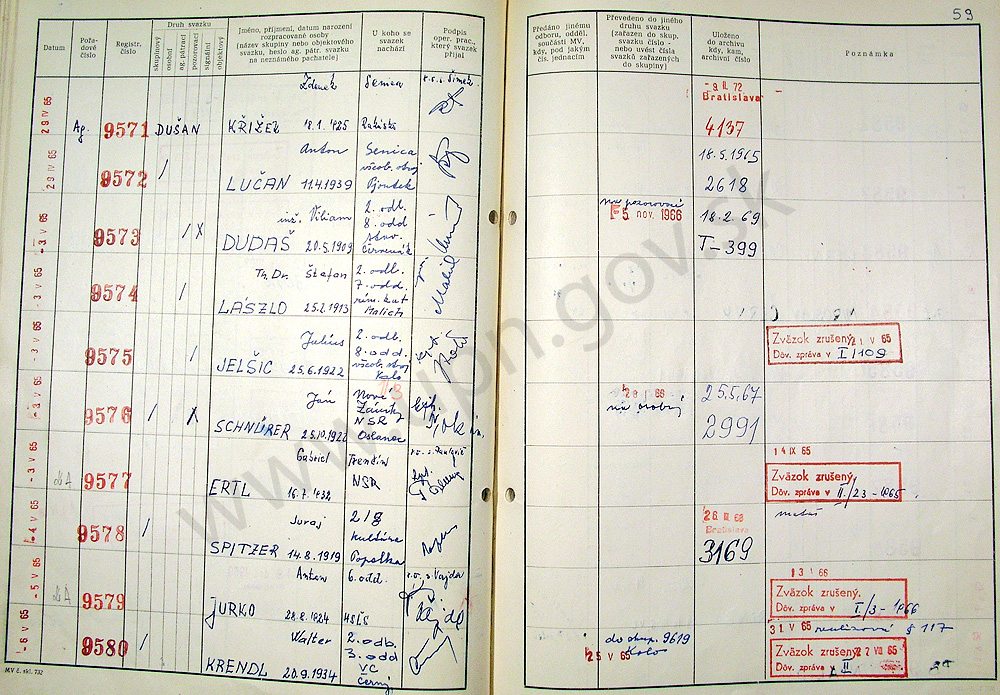 59
Datum
Pořadové číslo
Registr. číslo
Druh svazku
skupinový
osobní
ag. pátrací
pozorovací
signální
objektový
Jméno, příjmení, datum narození
rozpracované osoby
(název skupiny nebo objektového
svazku, heslo ag. pátr. svazku
na neznámého pachatele)
U koho se
svazek
nachází
Podpis
oper. prac.,
který svazek
přijal
Předáno jinému
odboru, odděl.
součásti MV,
kdy, pod jakým
čís. jednacím
Převedeno do jiného
druhu svazku
(zařazen do skup.
svazku číslo -
nebo uvést čísla
svazků zařazených
do skupiny)
Uloženo
do archivu
kdy, kam,
archivní číslo
Poznámka
29 IV 65
Ag.
9571
DUŠAN
Zdenek
KŘIŽEK 18.1.1925
Senica
Bratislava
4137
29 IV 65
9572
/
Anton
LUČAN 11.4.1939
Senica
18.5.1965
2618
-3 V 65
9573
/ X
inž. Viliam
DUDAŠ 20.5.1909
2. odb.
8. odd
5 nov. 1966
18.2.69
T-399
-3 V 65
9574
/
Th. Dr. Štefan
LÁSZLO 25.2.1913
2. odb.
7. odd.
rím. kat
-3 V 65
9575
/
Július
JELŠIC 25.6.1922
2. odb.
8. odd.
Zväzok zrušený 21 V 65
Dôv. zpráva v I/109
-3 V 65
9576
/ X
Ján
SCHNÜRER 25.10.1922
Nové
Zámky
NSR
Oslanec
na osobný
25.5.67
2991
-3 V 65
9577
Gabriel
ERTL 16.7.1932
Trenčín
NSR
14 IX 65
Zväzok zrušený
Dôv. zpráva v II/23-1965
-4 V 65
9578
/
Juraj
SPITZER 14.8.1919
kultúra
Popelka
26 III 68
Bratislava
3169
-5 V 65
9579
Anton
JURKO 28.8.1924
6. odd.
r.o. s. Vajda
13 I 66
Zväzok zrušený.
Dôv. zpráva v I/3-1966
-6 V 65
9580
/
Walter
KRENDL 20.9.1934
2. odb.
3. odd
VC
Černý
do skup. 9619
25 V 65
31 V 65 realizovaná § 117
Zväzok zrušený 27 VII 65
Dôv. zpráva v II
MV č. skl. 732
www.upn.gov.sk